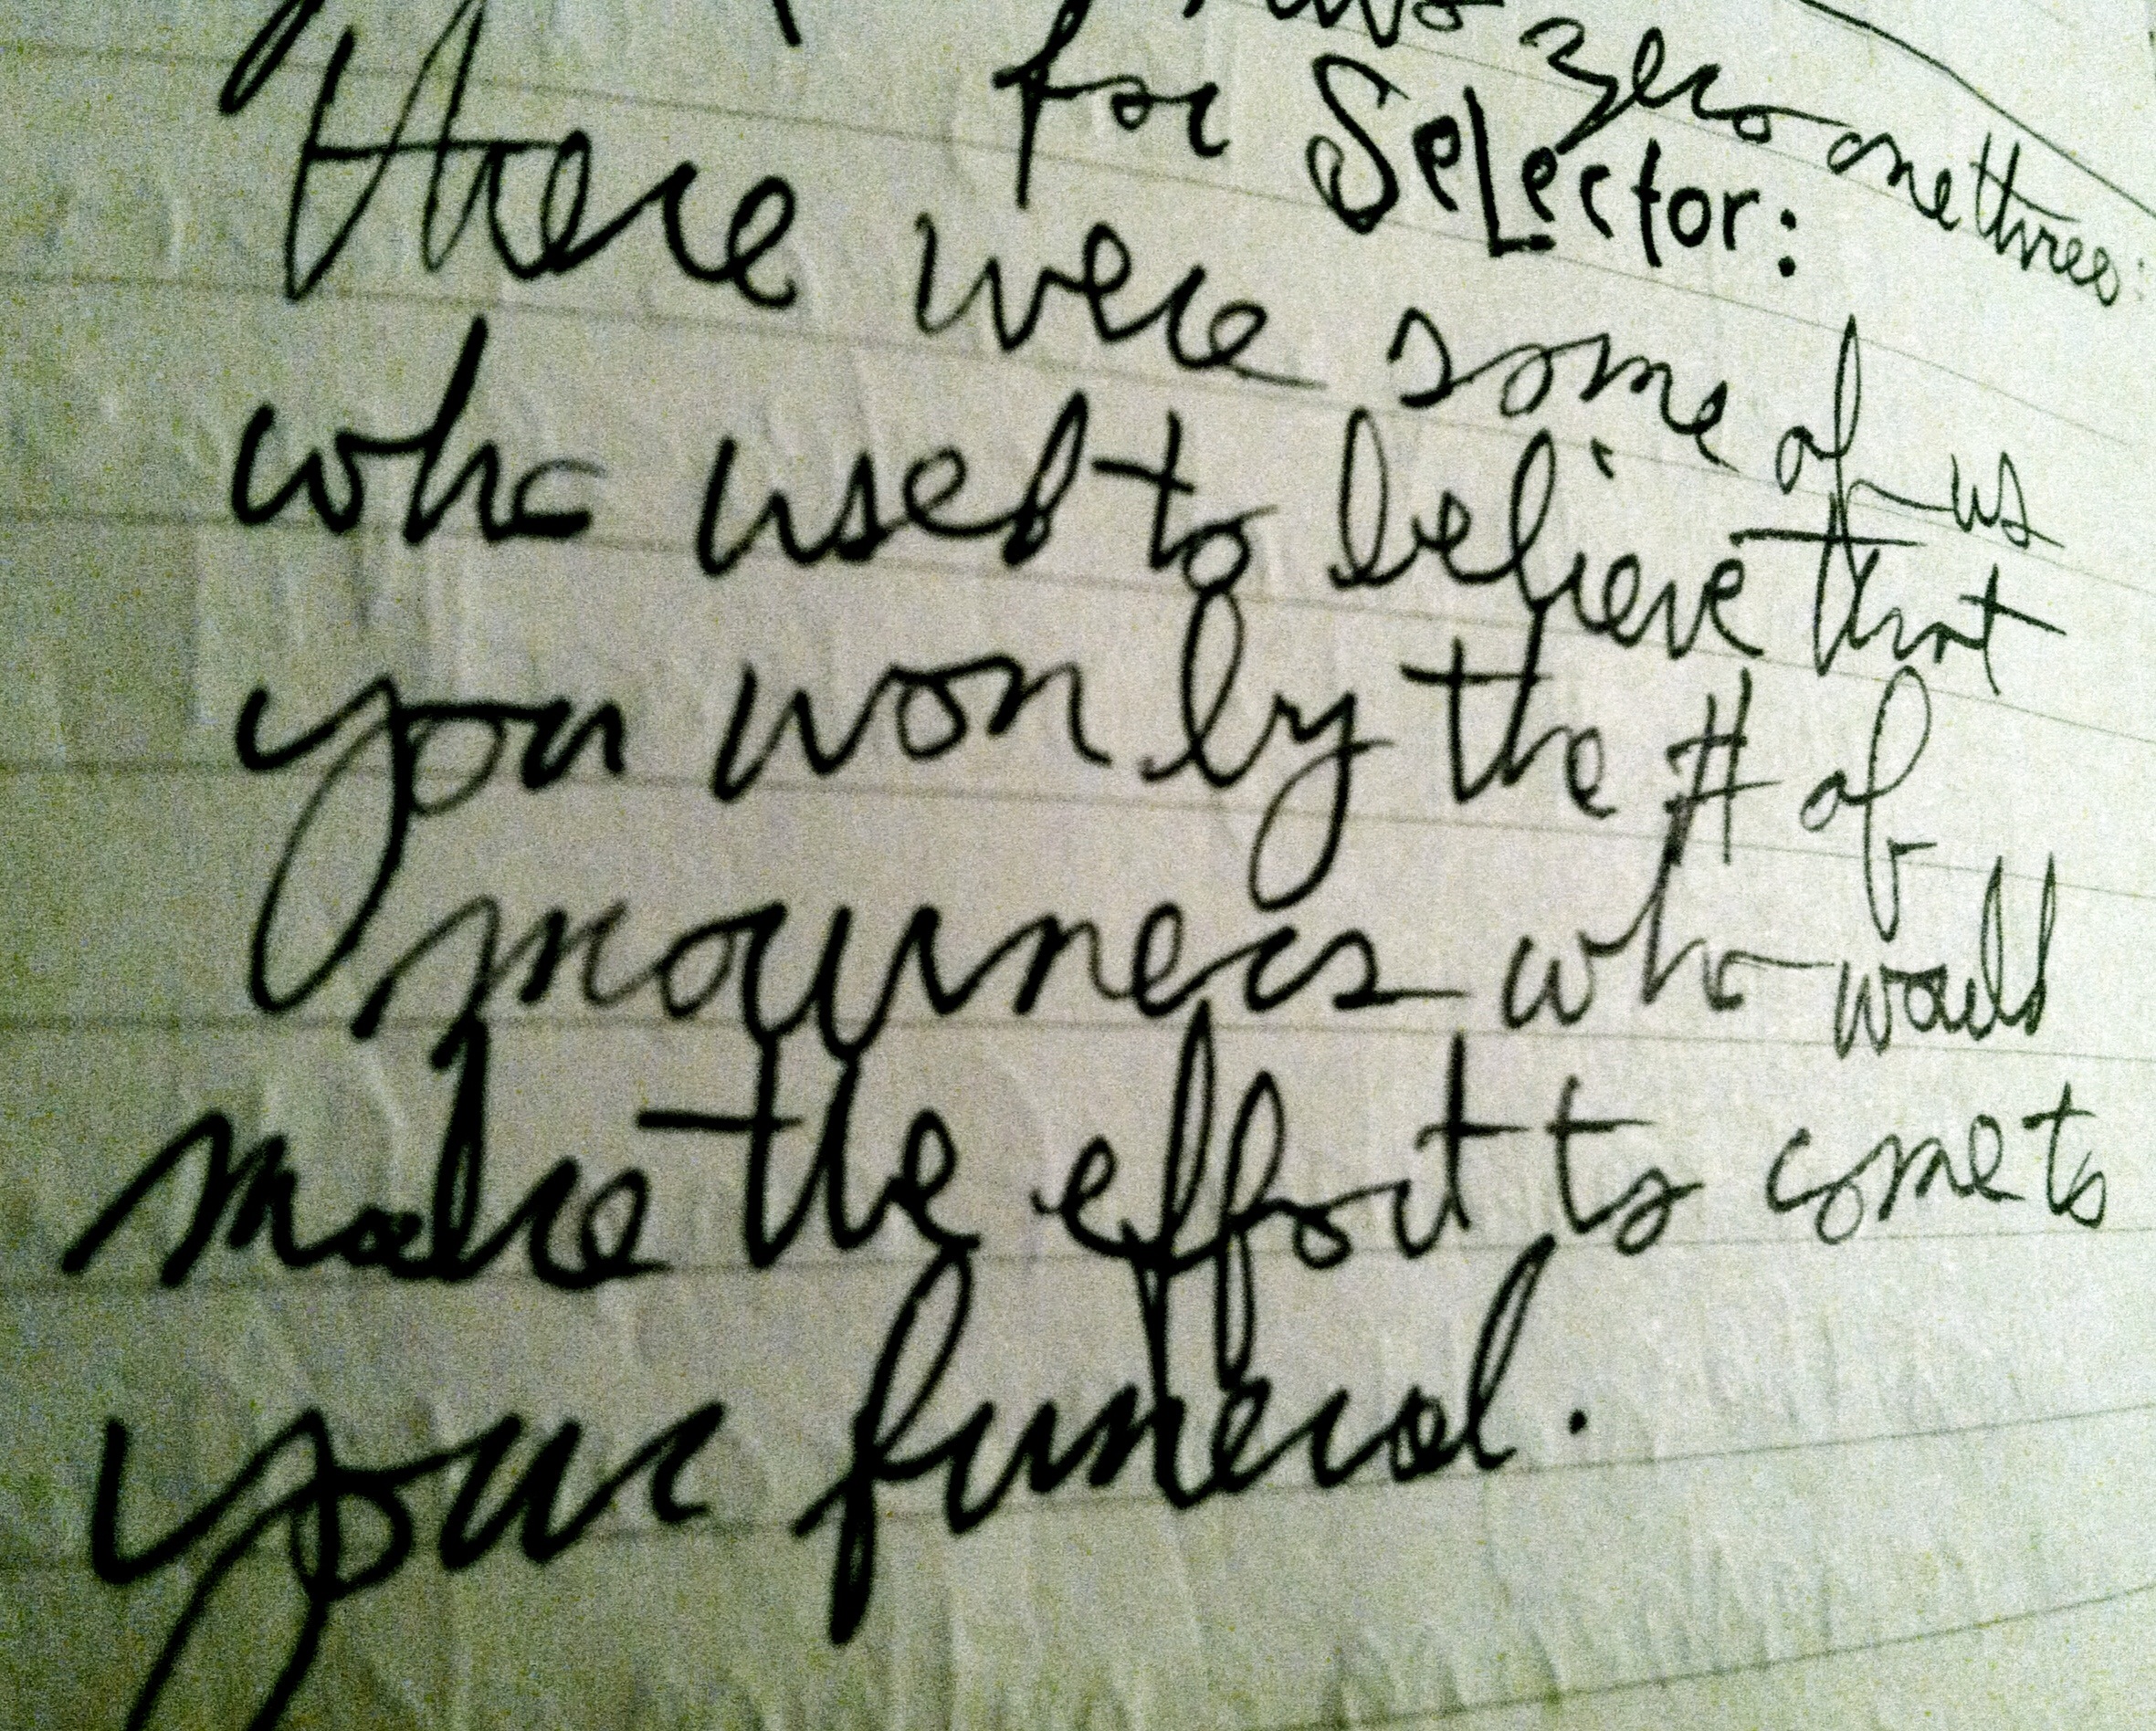 two zero one three:
for SeLector:
There were some of us
who used to believe that
you won by the # of
mourners who would
make the effort to come to
your funeral.